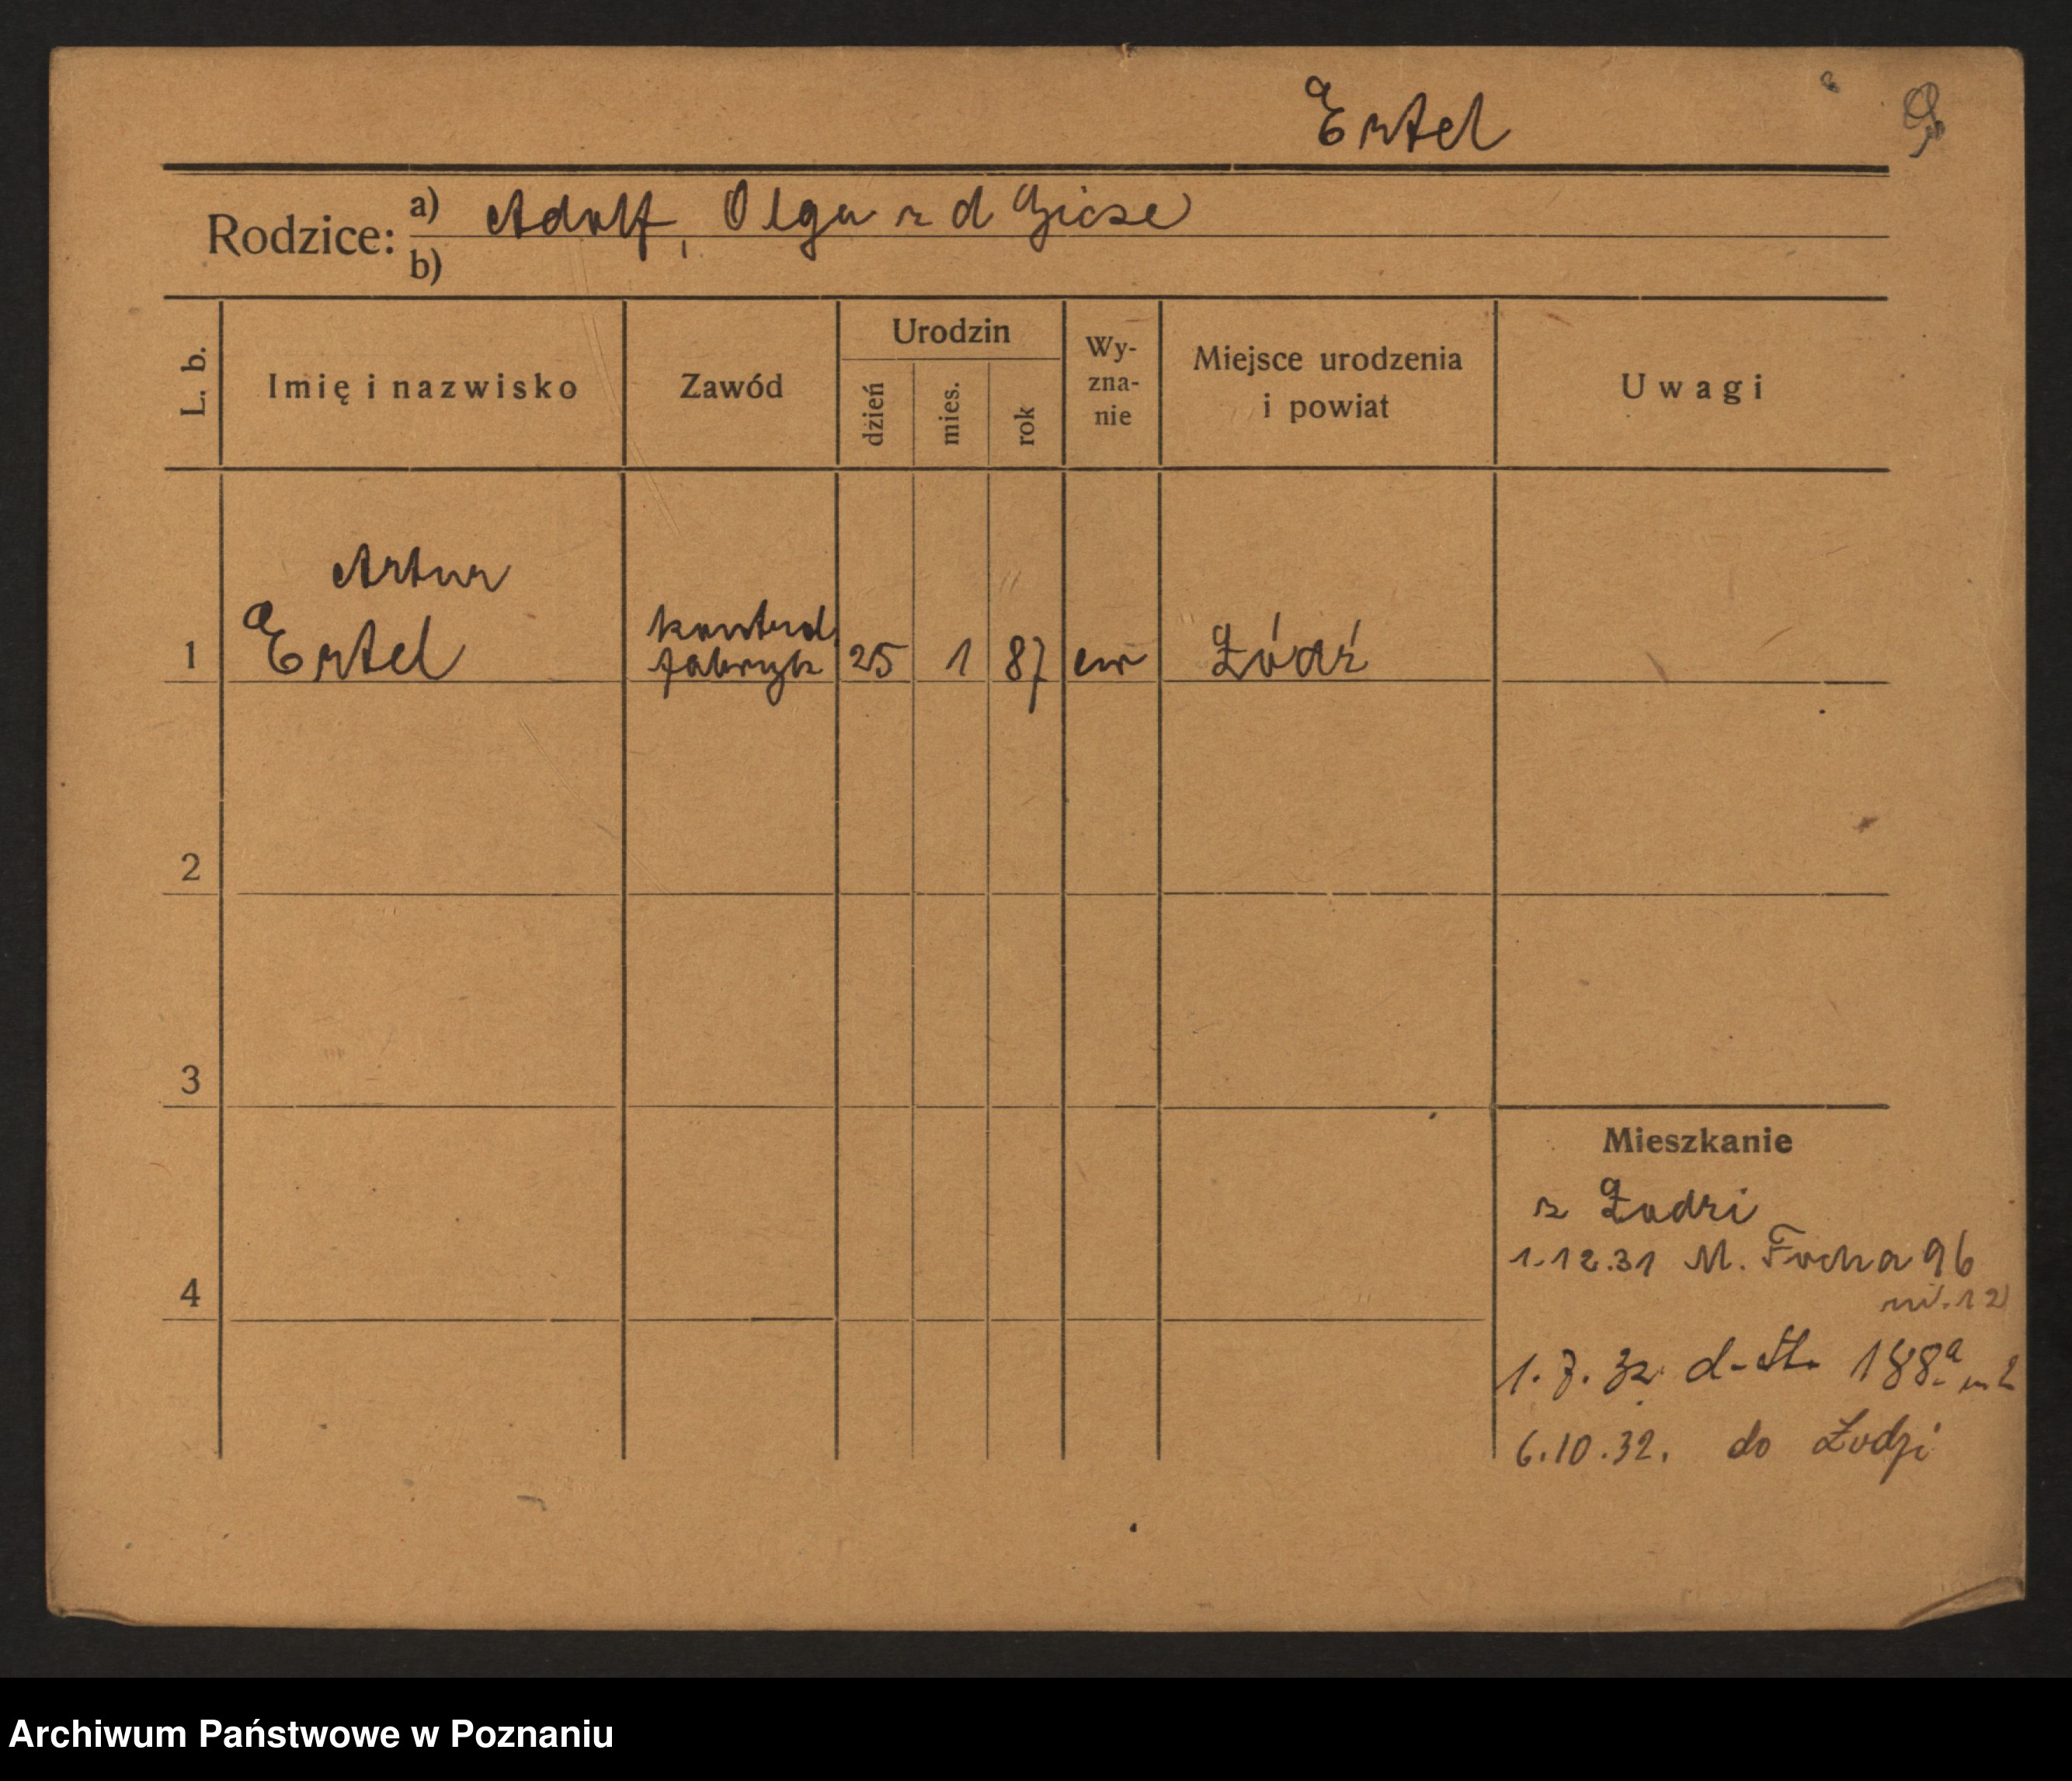 Ertel
Rodzice: a) Adolf, Olga z d Giese
b)
L. b.
Imię i nazwisko
Zawód
Urodzin
dzień
mies.
rok
Wy-
zna-
nie
Miejsce urodzenia
i powiat
Uwagi
Artur
1 Ertel
kontrol.
fabryk
25 1 87 ew Łódź
2
3
4
Mieszkanie
z Łodzi
1.12.31 M. Focha 96
m. 12
1. 7. 32 d-tto 188a m 2
6.10.32. do Łodzi
Archiwum Państwowe w Poznaniu